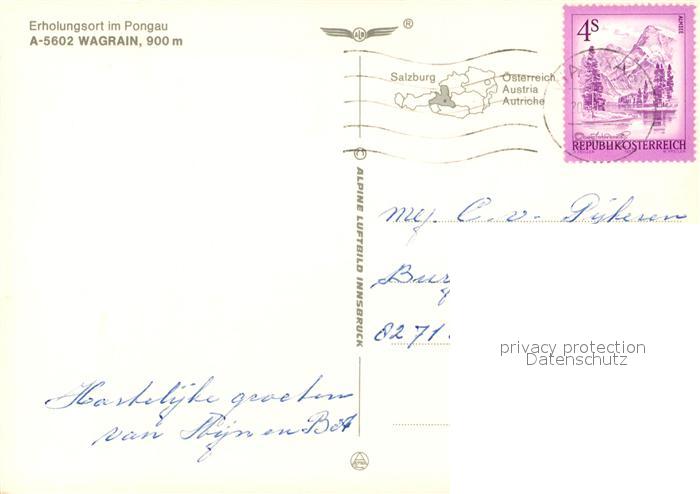 Erholungsort im Pongau
A-5602 WAGRAIN, 900 m
®
Salzburg
Österreich
Austria
Autriche
4S
ALMSEE
REPUBLIK ÖSTERREICH
ALPINE LUFTBILD INNSBRUCK
Mej. C. v. Dijkeren
Burg
8271
privacy protection
Datenschutz
Hartelijke groeten
van Stijn en Bet